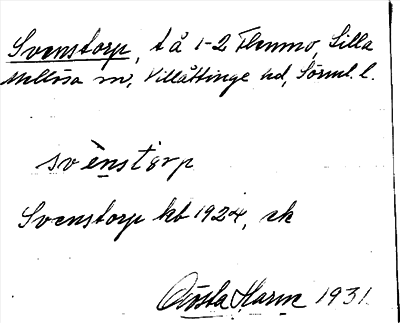 Svenstorp, t å 1-2 Flenmo, Lilla
Mellösa sn, Villåttinge hd, Sörml. l.
svènstórp
Svenstorp kb 1924, ek
Gösta Harm 1931.